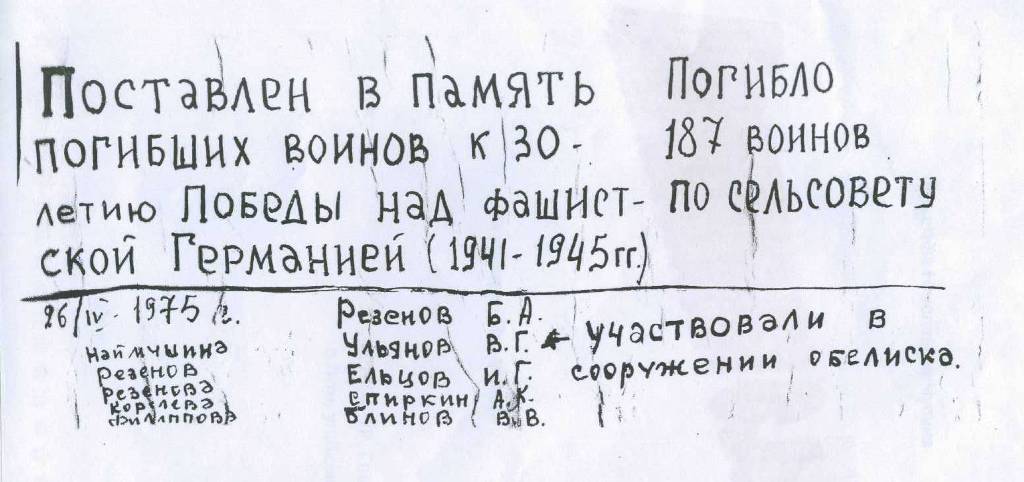 Поставлен в память
погибших воинов к 30-
летию Победы над фашист-
ской Германией (1941-1945гг.)
Погибло
187 воинов
по сельсовету
26/IV-1975 г.
Наймушина
Резенов
Резенова
Королева
Филиппова
Резенов Б.А.
Ульянов В.Г.
Ельцов И.Г.
Спиркин А.К.
Блинов В.В.
← участвовали в
сооружении обелиска.